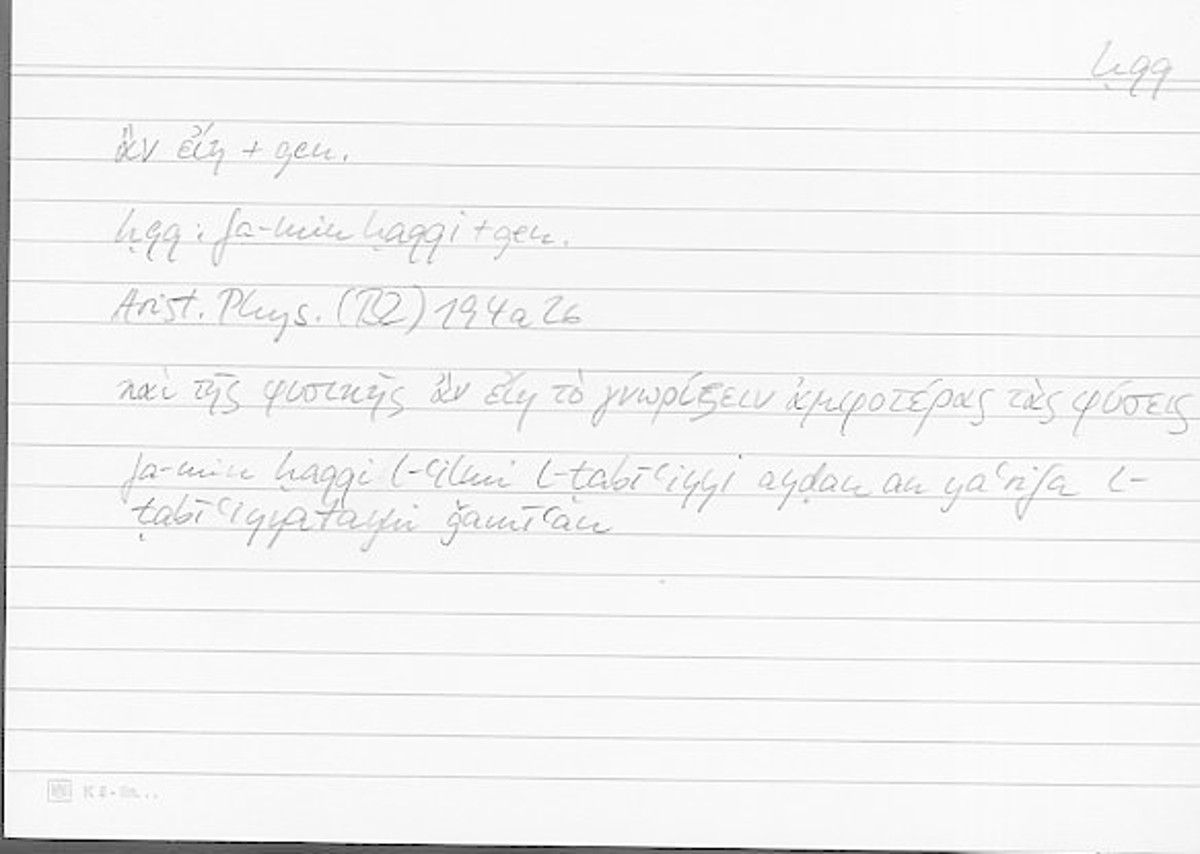 ḥqq
ἂν εἴη + gen.
ḥqq : fa-min ḥaqqi + gen.
Arist. Phys. (B2) 194a26
καὶ τῆς φυσικῆς ἂν εἴη τὸ γνωρίζειν ἀμφοτέρας τὰς φύσεις
fa-min ḥaqqi l-ʿilmi l-ṭabīʿiyyi ayḍan an yaʿrifa l-
ṭabīʿiyyatayni ǧamīʿan